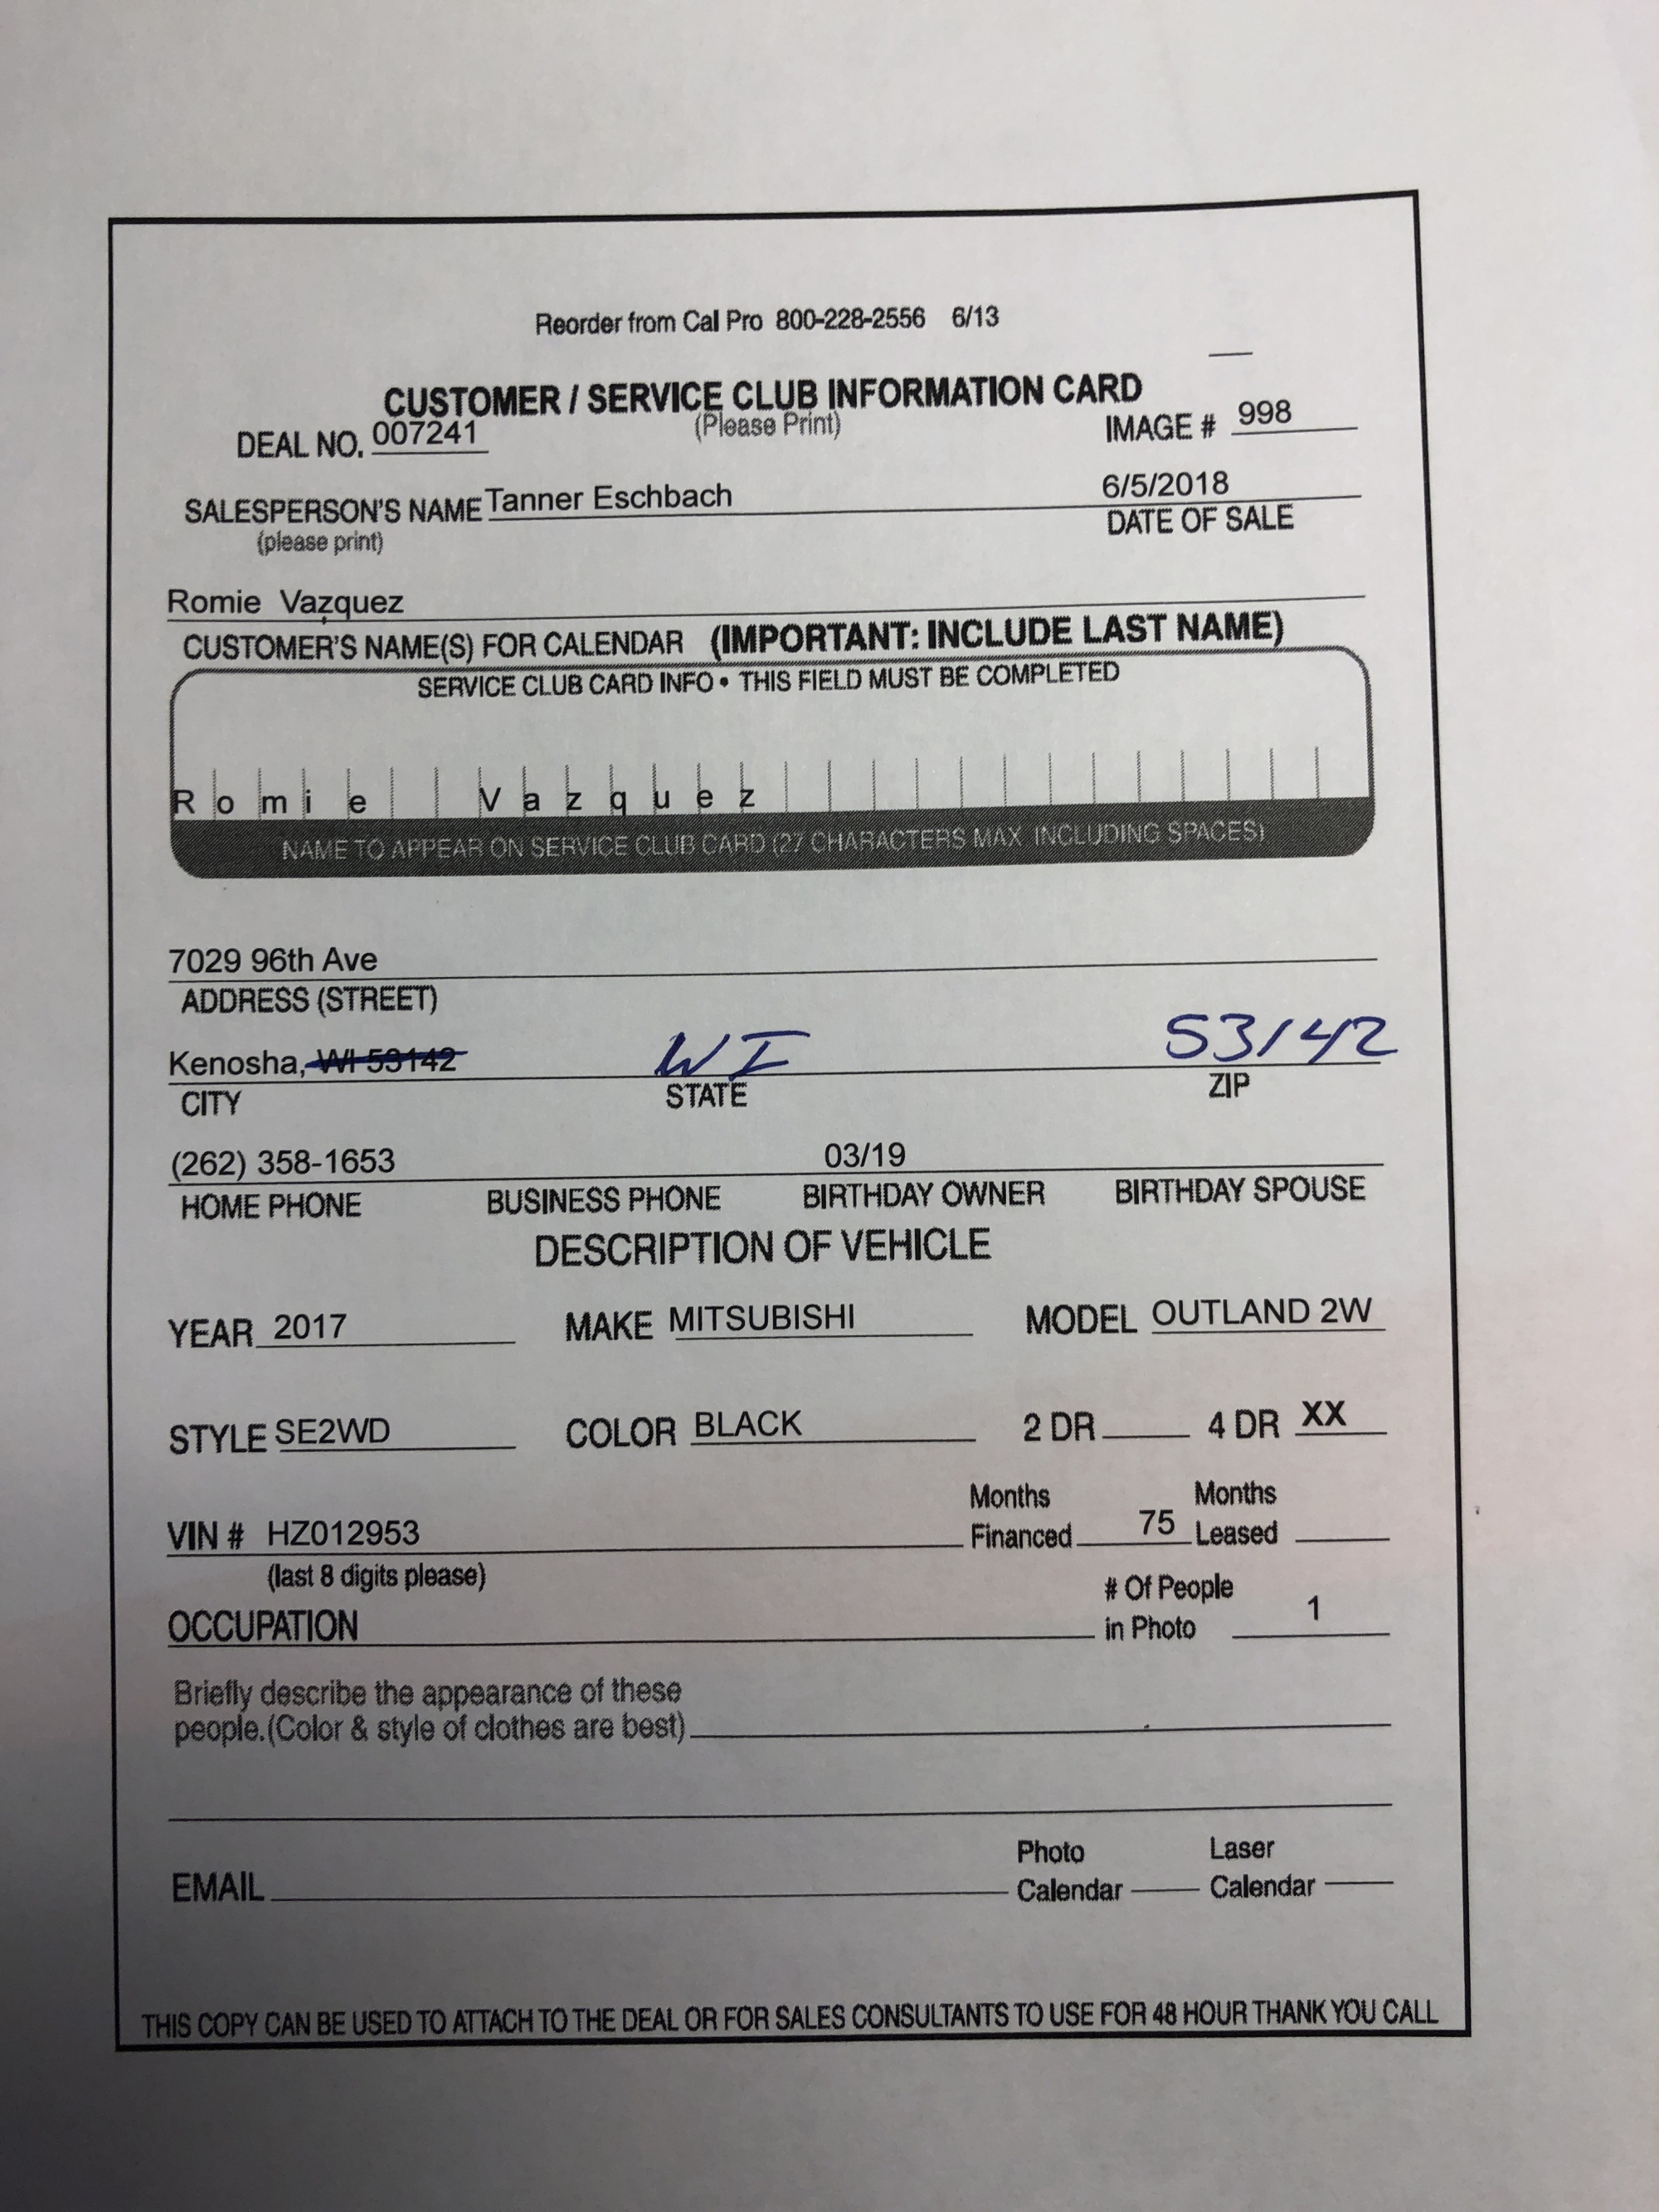 Reorder from Cal Pro 800-228-2556 6/13
CUSTOMER / SERVICE CLUB INFORMATION CARD
(Please Print)
DEAL NO. 007241 IMAGE # 998
SALESPERSON'S NAME Tanner Eschbach 6/5/2018
(please print) DATE OF SALE
Romie Vazquez
CUSTOMER'S NAME(S) FOR CALENDAR (IMPORTANT: INCLUDE LAST NAME)
SERVICE CLUB CARD INFO • THIS FIELD MUST BE COMPLETED
R o m i e V a z q u e z
NAME TO APPEAR ON SERVICE CLUB CARD (27 CHARACTERS MAX. INCLUDING SPACES)
7029 96th Ave
ADDRESS (STREET)
Kenosha, WI 53142 WI 53142
CITY STATE ZIP
(262) 358-1653 03/19
HOME PHONE BUSINESS PHONE BIRTHDAY OWNER BIRTHDAY SPOUSE
DESCRIPTION OF VEHICLE
YEAR 2017 MAKE MITSUBISHI MODEL OUTLAND 2W
STYLE SE2WD COLOR BLACK 2 DR 4 DR XX
Months Months
VIN # HZ012953 Financed 75 Leased
(last 8 digits please)
# Of People
OCCUPATION in Photo 1
Briefly describe the appearance of these
people.(Color & style of clothes are best)
Photo Laser
EMAIL Calendar Calendar
THIS COPY CAN BE USED TO ATTACH TO THE DEAL OR FOR SALES CONSULTANTS TO USE FOR 48 HOUR THANK YOU CALL